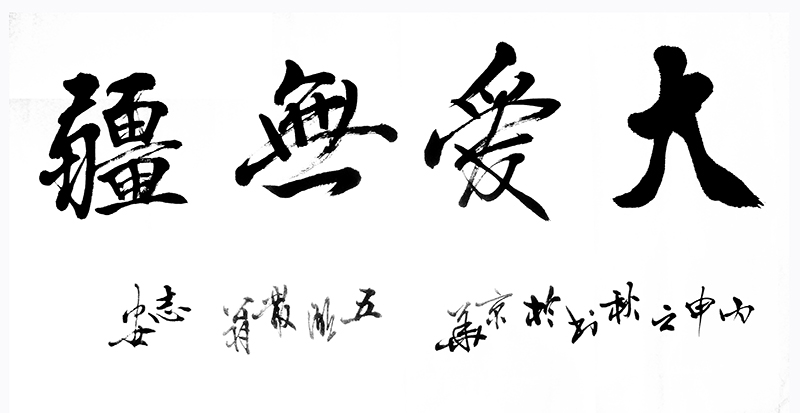 大愛無疆
丙申之秋书於京華 五湖散翁 志